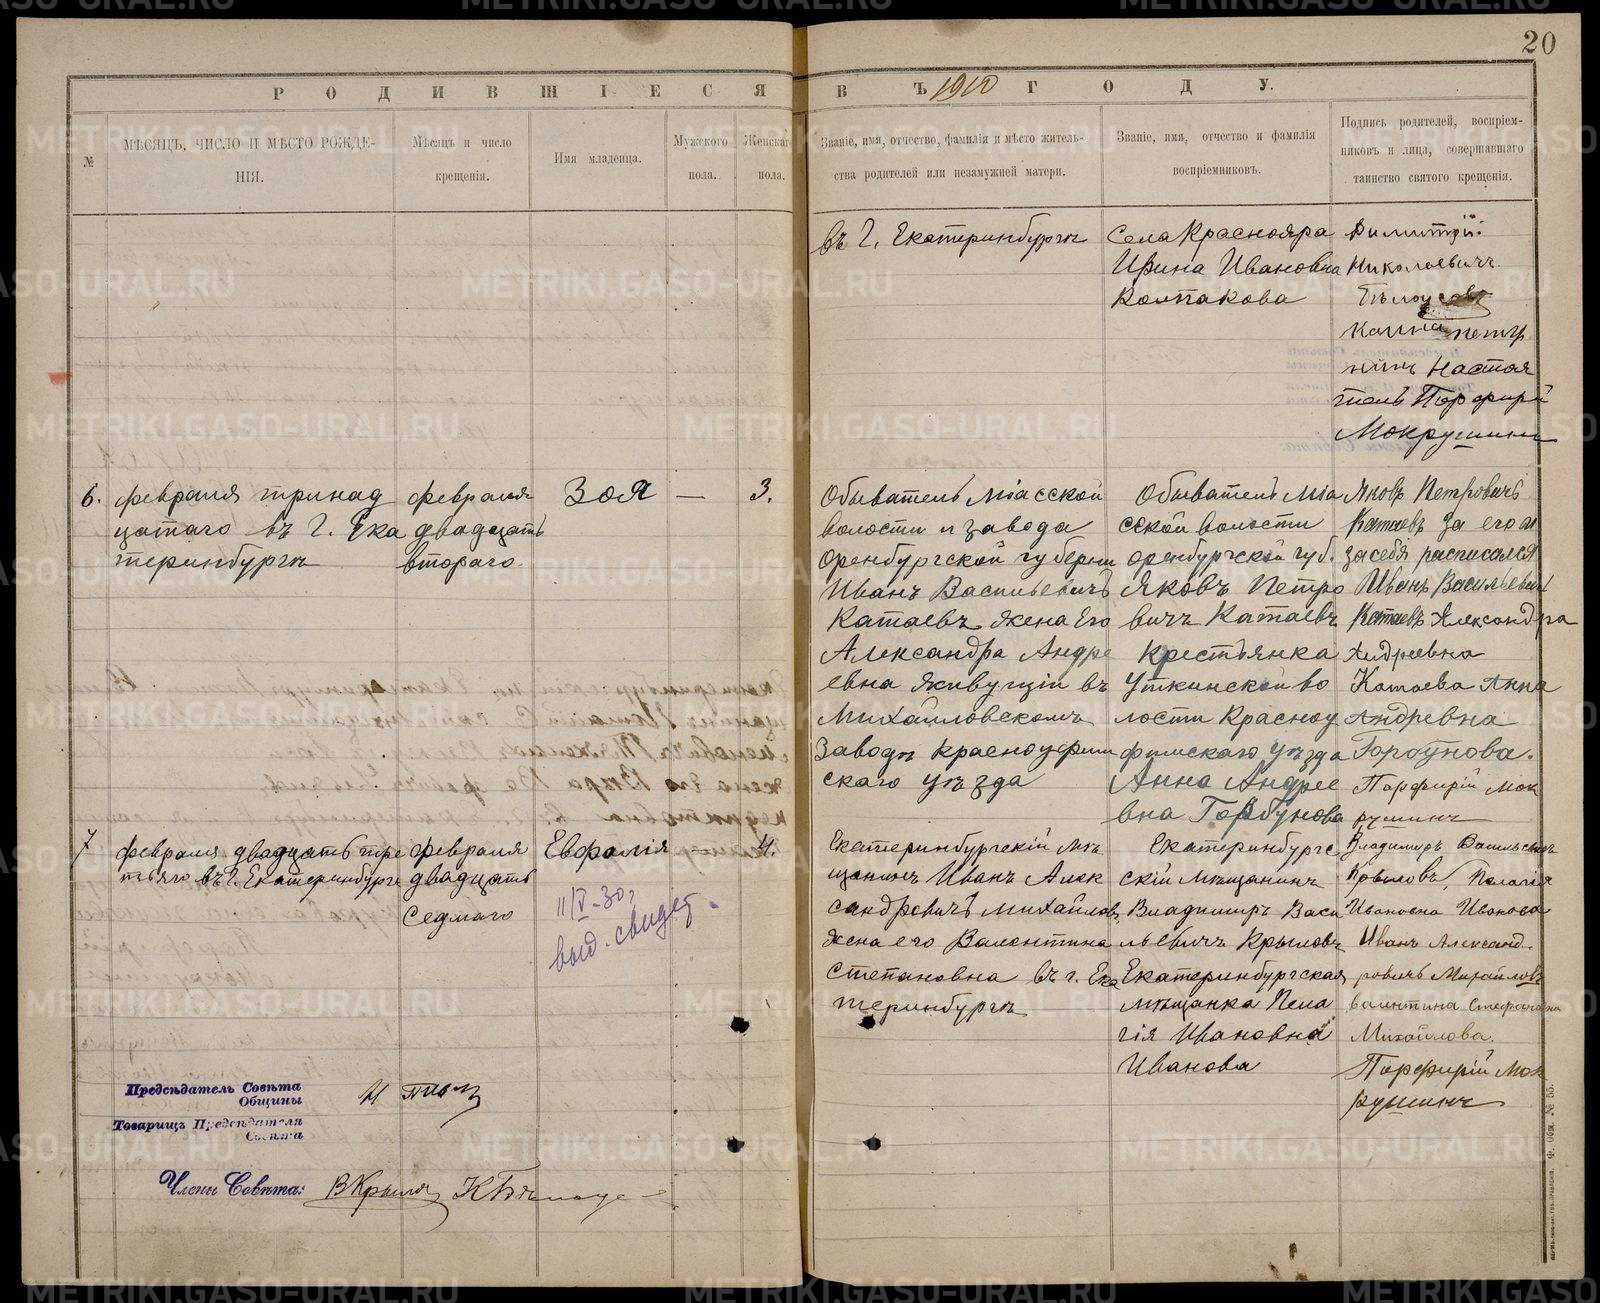 20
РОДИВШІЕСЯ
ВЪ 1910 ГОДУ.
№
МѢСЯЦЪ, ЧИСЛО И МѢСТО РОЖДЕ-
НІЯ.
Мѣсяцъ и число
крещенія.
Имя младенца.
Мужского
пола.
Женскаго
пола.
Званіе, имя, отчество, фамилія и мѣсто житель-
ства родителей или незамужней матери.
Званіе, имя, отчество и фамилія
воспріемниковъ.
Подпись родителей, воспріем-
никовъ и лица, совершавшаго
таинство святого крещенія.
въ г. Екатеринбургѣ
Села Краснояра
Ирина Ивановна
Колпакова
Димитрій
Николаевичъ
Настоя
тель Порфирій
Мокрушинъ
6.
февраля тринад
цатаго въ г. Ека
теринбургѣ
февраля
двадцать
втораго
Зоя
—
3.
Обыватель Міасской
волости и завода
Оренбургской губерніи
Иванъ Васильевичъ
Катаевъ жена его
Александра Андре
евна живущіи въ
Михайловскомъ
Заводѣ красноуфим
скаго уѣзда
Обыватель Міа
сской волости
оренбургской губ.
Яковъ Петро
вичъ Катаевъ
Крестьянка
Уткинской во
лости Красноу
фимскаго уѣзда
Анна Андрее
вна Горбунова
Яковъ Петровичъ
Катаевъ За его и
за себя расписался
Иванъ Васильевичъ
Катаевъ Александра
Андреевна
Катаева Анна
Андревна
Горбунова.
Порфирій Мок
рушинъ
7
февраля двадцать тре
тьяго въ г. Екатеринбургѣ
февраля
двадцать
Седмаго
Евфалія
4.
11/IV-30 г
выд. свидет.
Екатеринбургскій мѣ
щанинъ Иванъ Алек
сандровичъ Михайловъ
жена его Валентина
Степановна въ г. Ека
теринбургѣ
Екатеринбургс
скій мѣщанинъ
Владимиръ Васи
льевичъ Крыловъ
Екатеринбургская
мѣщанка Пела
гія Ивановна
Иванова
Владимиръ Васильевичъ
Крыловъ, Пелагія
Ивановна Иванова
Иванъ Александ
ровичъ Михайловъ
валентина Стефановна
Михайлова.
Порфирій Мок
рушинъ
Предсѣдатель Совѣта
Общины
Товарищъ Предсѣдателя
Совѣта
Члены Совѣта:
В Крылов
METRIKI.GASO-URAL.RU